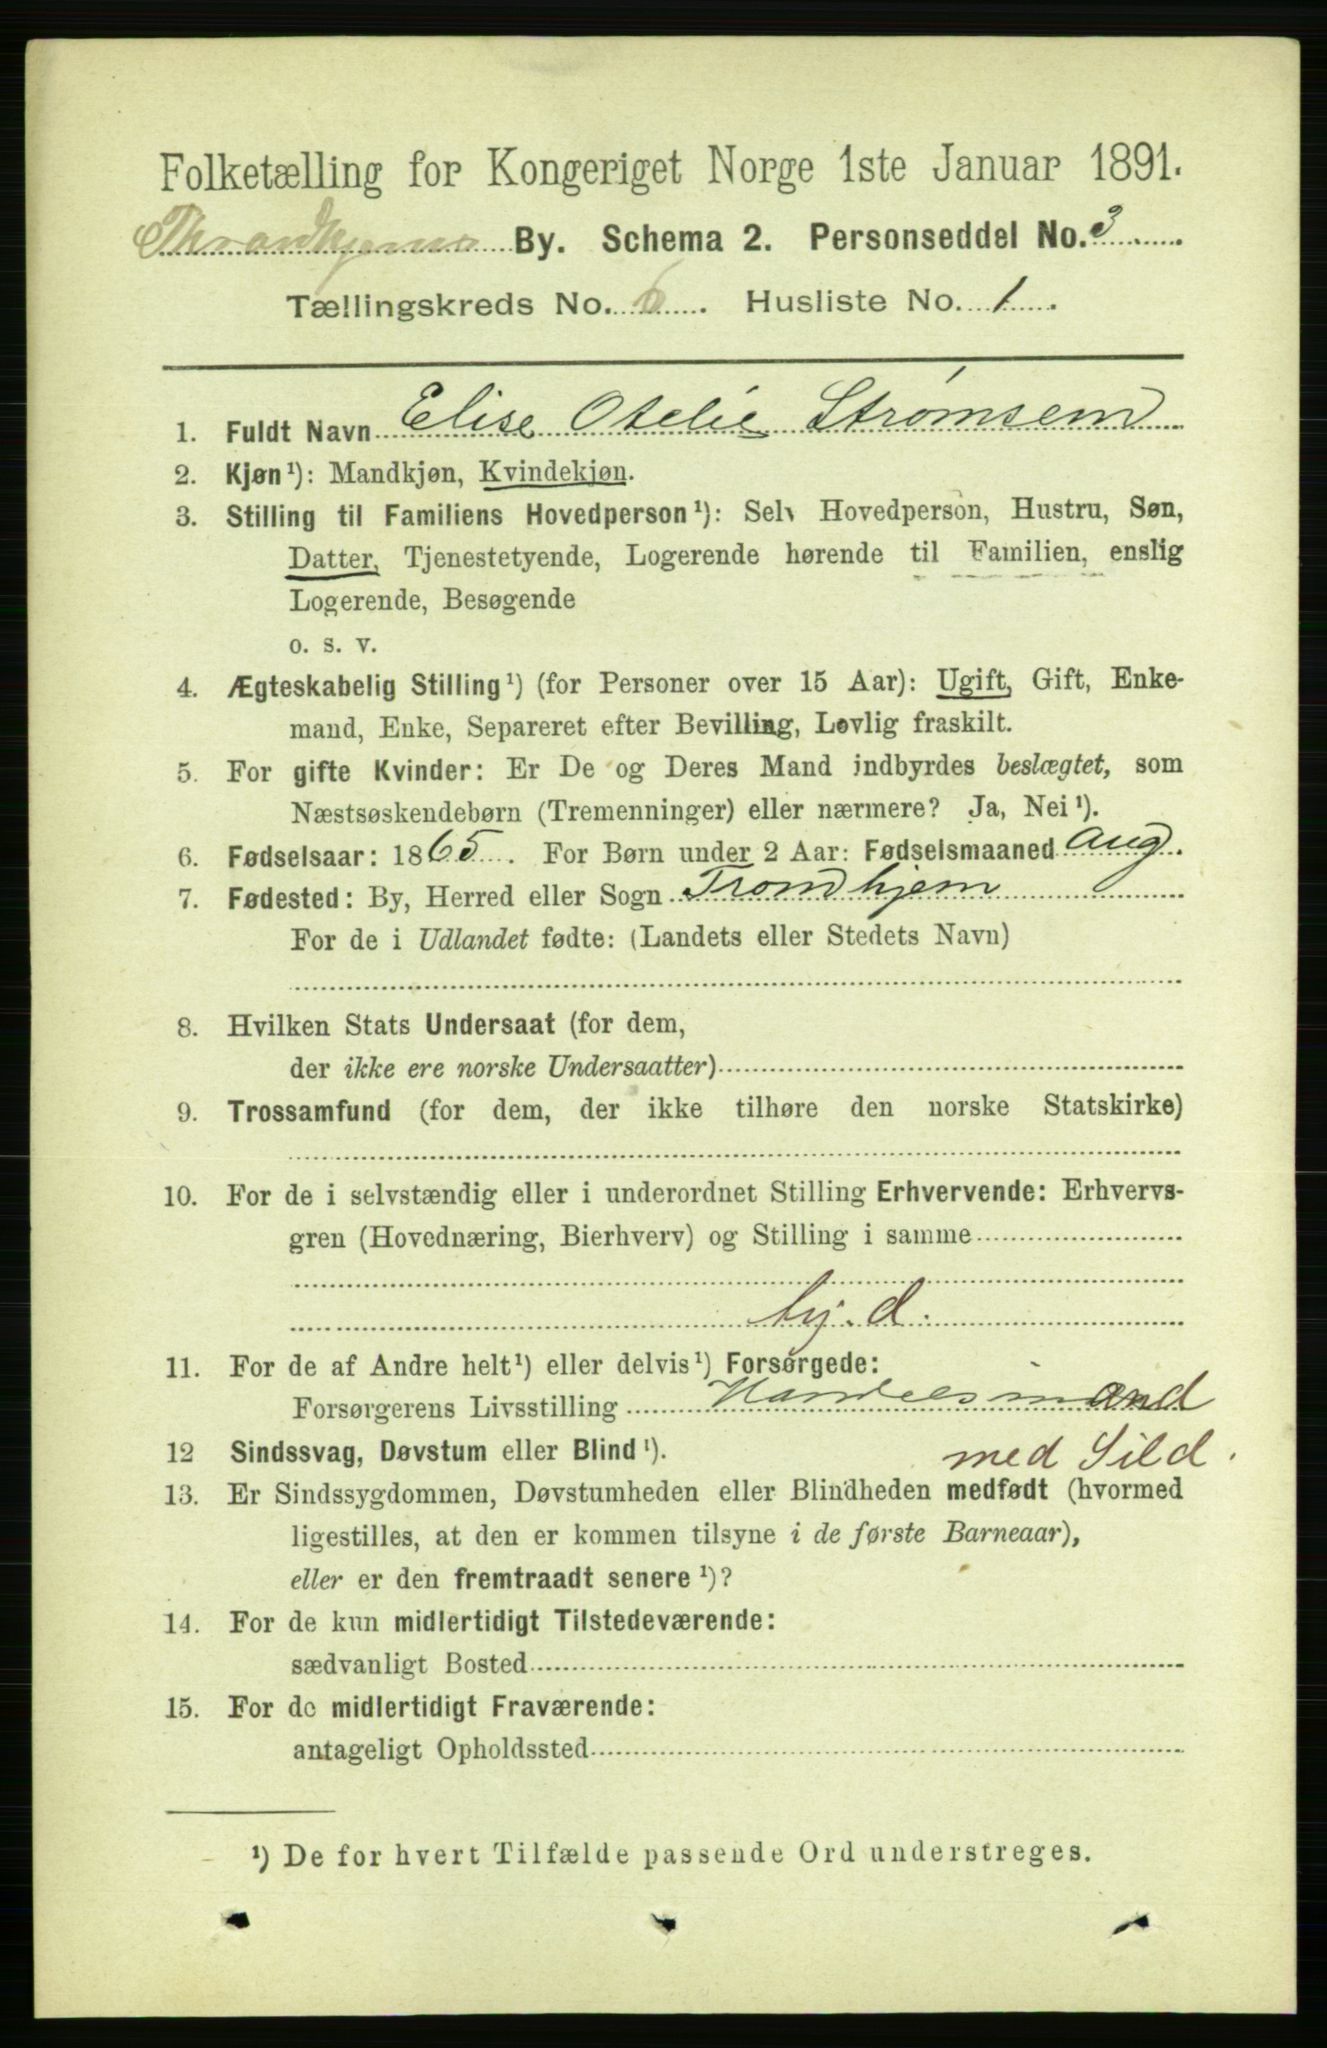 Folketælling for Kongeriget Norge 1ste Januar 1891.
Throndhjems By. Schema 2. Personseddel No. 3
Tællingskreds No. 6. Husliste No. 1.
1. Fuldt Navn Elise Otelie Strømsem
2. Kjøn¹): Mandkjøn, Kvindekjøn.
3. Stilling til Familiens Hovedperson¹): Selv Hovedperson, Hustru, Søn,
Datter, Tjenestetyende, Logerende hørende til Familien, enslig
Logerende, Besøgende
o. s. v.
4. Ægteskabelig Stilling¹) (for Personer over 15 Aar): Ugift, Gift, Enke-
mand, Enke, Separeret efter Bevilling, Lovlig fraskilt.
5. For gifte Kvinder: Er De og Deres Mand indbyrdes beslægtet, som
Næstsøskendebørn (Tremenninger) eller nærmere? Ja, Nei¹).
6. Fødselsaar: 1865. For Børn under 2 Aar: Fødselsmaaned Aug.
7. Fødested: By, Herred eller Sogn Trondhjem
For de i Udlandet fødte: (Landets eller Stedets Navn)
8. Hvilken Stats Undersaat (for dem,
der ikke ere norske Undersaatter)
9. Trossamfund (for dem, der ikke tilhøre den norske Statskirke)
10. For de i selvstændig eller i underordnet Stilling Erhvervende: Erhvervs-
gren (Hovednæring, Bierhverv) og Stilling i samme
hj. d.
11. For de af Andre helt¹) eller delvis¹) Forsørgede:
Forsørgerens Livsstilling Handelsmand
12 Sindssvag, Døvstum eller Blind¹). med Sild.
13. Er Sindssygdommen, Døvstumheden eller Blindheden medfødt (hvormed
ligestilles, at den er kommen tilsyne i de første Barneaar),
eller er den fremtraadt senere¹)?
14. For de kun midlertidigt Tilstedeværende:
sædvanligt Bosted
15. For de midlertidigt Fraværende:
antageligt Opholdssted
¹) De for hvert Tilfælde passende Ord understreges.